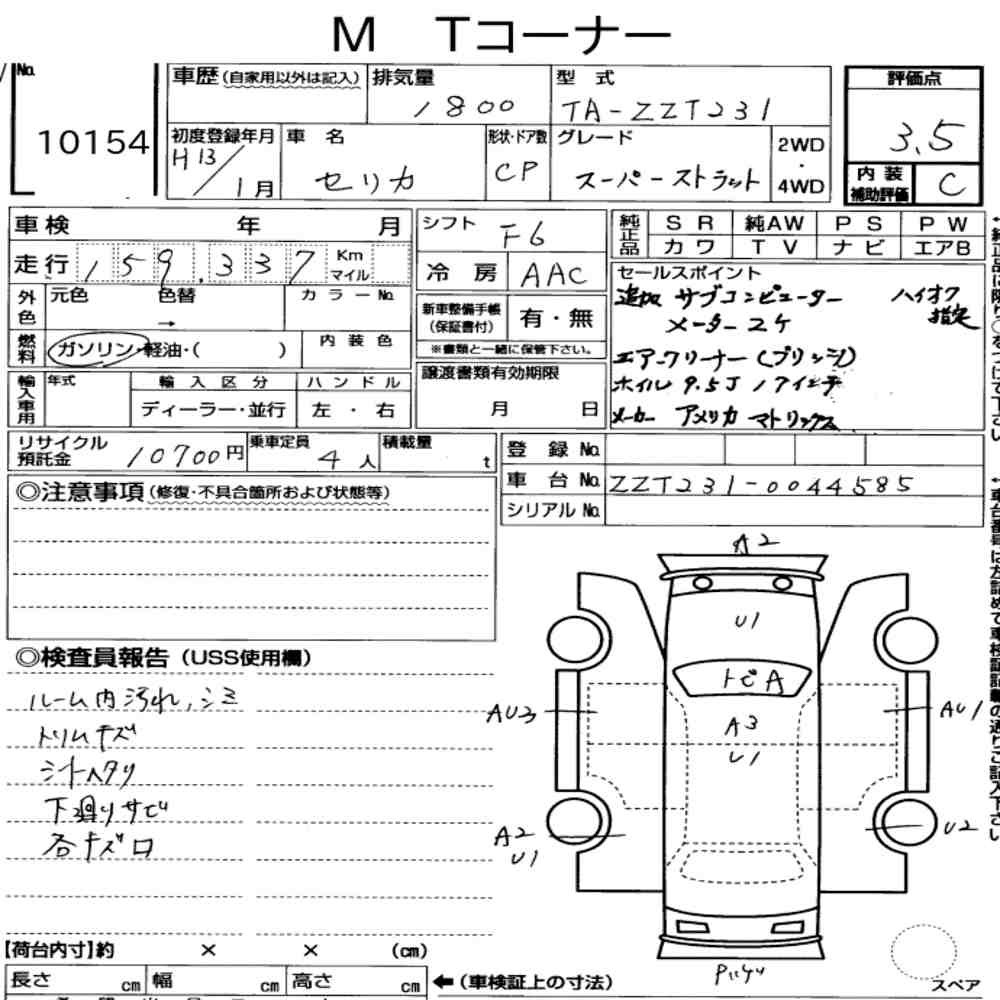 M Tコーナー
No. 10154
車歴 (自家用以外は記入)
排気量 1800
型式 TA-ZZT231
評価点 3.5
初度登録年月 H13/1月
車名 セリカ
形状・ドア数 CP
グレード スーパーストラット
2WD・4WD
内装補助評価 C
車検 年 月
シフト F6
純正品 SR 純AW PS PW
カワ TV ナビ エアB
走行 159,337 Km マイル
冷房 AAC
セールスポイント
追加 サブコンピューター ハイオク
メーター2ケ 指定
エアークリーナー(ブリッツ)
ホイル 9.5J 17インチ
メーカー アメリカ マトリックス
外色 元色 色替 → カラーNo.
新車整備手帳(保証書付) 有・無
※書類と一緒に保管下さい。
燃料 ガソリン・軽油・( ) 内装色
譲渡書類有効期限 月 日
輸入車用 年式 輸入区分 ハンドル
ディーラー・並行 左・右
リサイクル預託金 10700円
乗車定員 4人
積載量 t
登録No.
車台No. ZZT231-0044585
シリアルNo.
◎注意事項(修復・不具合箇所および状態等)
◎検査員報告(USS使用欄)
ルーム内汚れ,シミ
トリムキズ
シートヘタリ
下廻りサビ
各キズロ
A2
U1
トビA
AU3
A3
U1
AU1
A2
U1
U2
【荷台内寸】約 × × (cm)
長さ cm 幅 cm 高さ cm
←(車検証上の寸法)
スペア